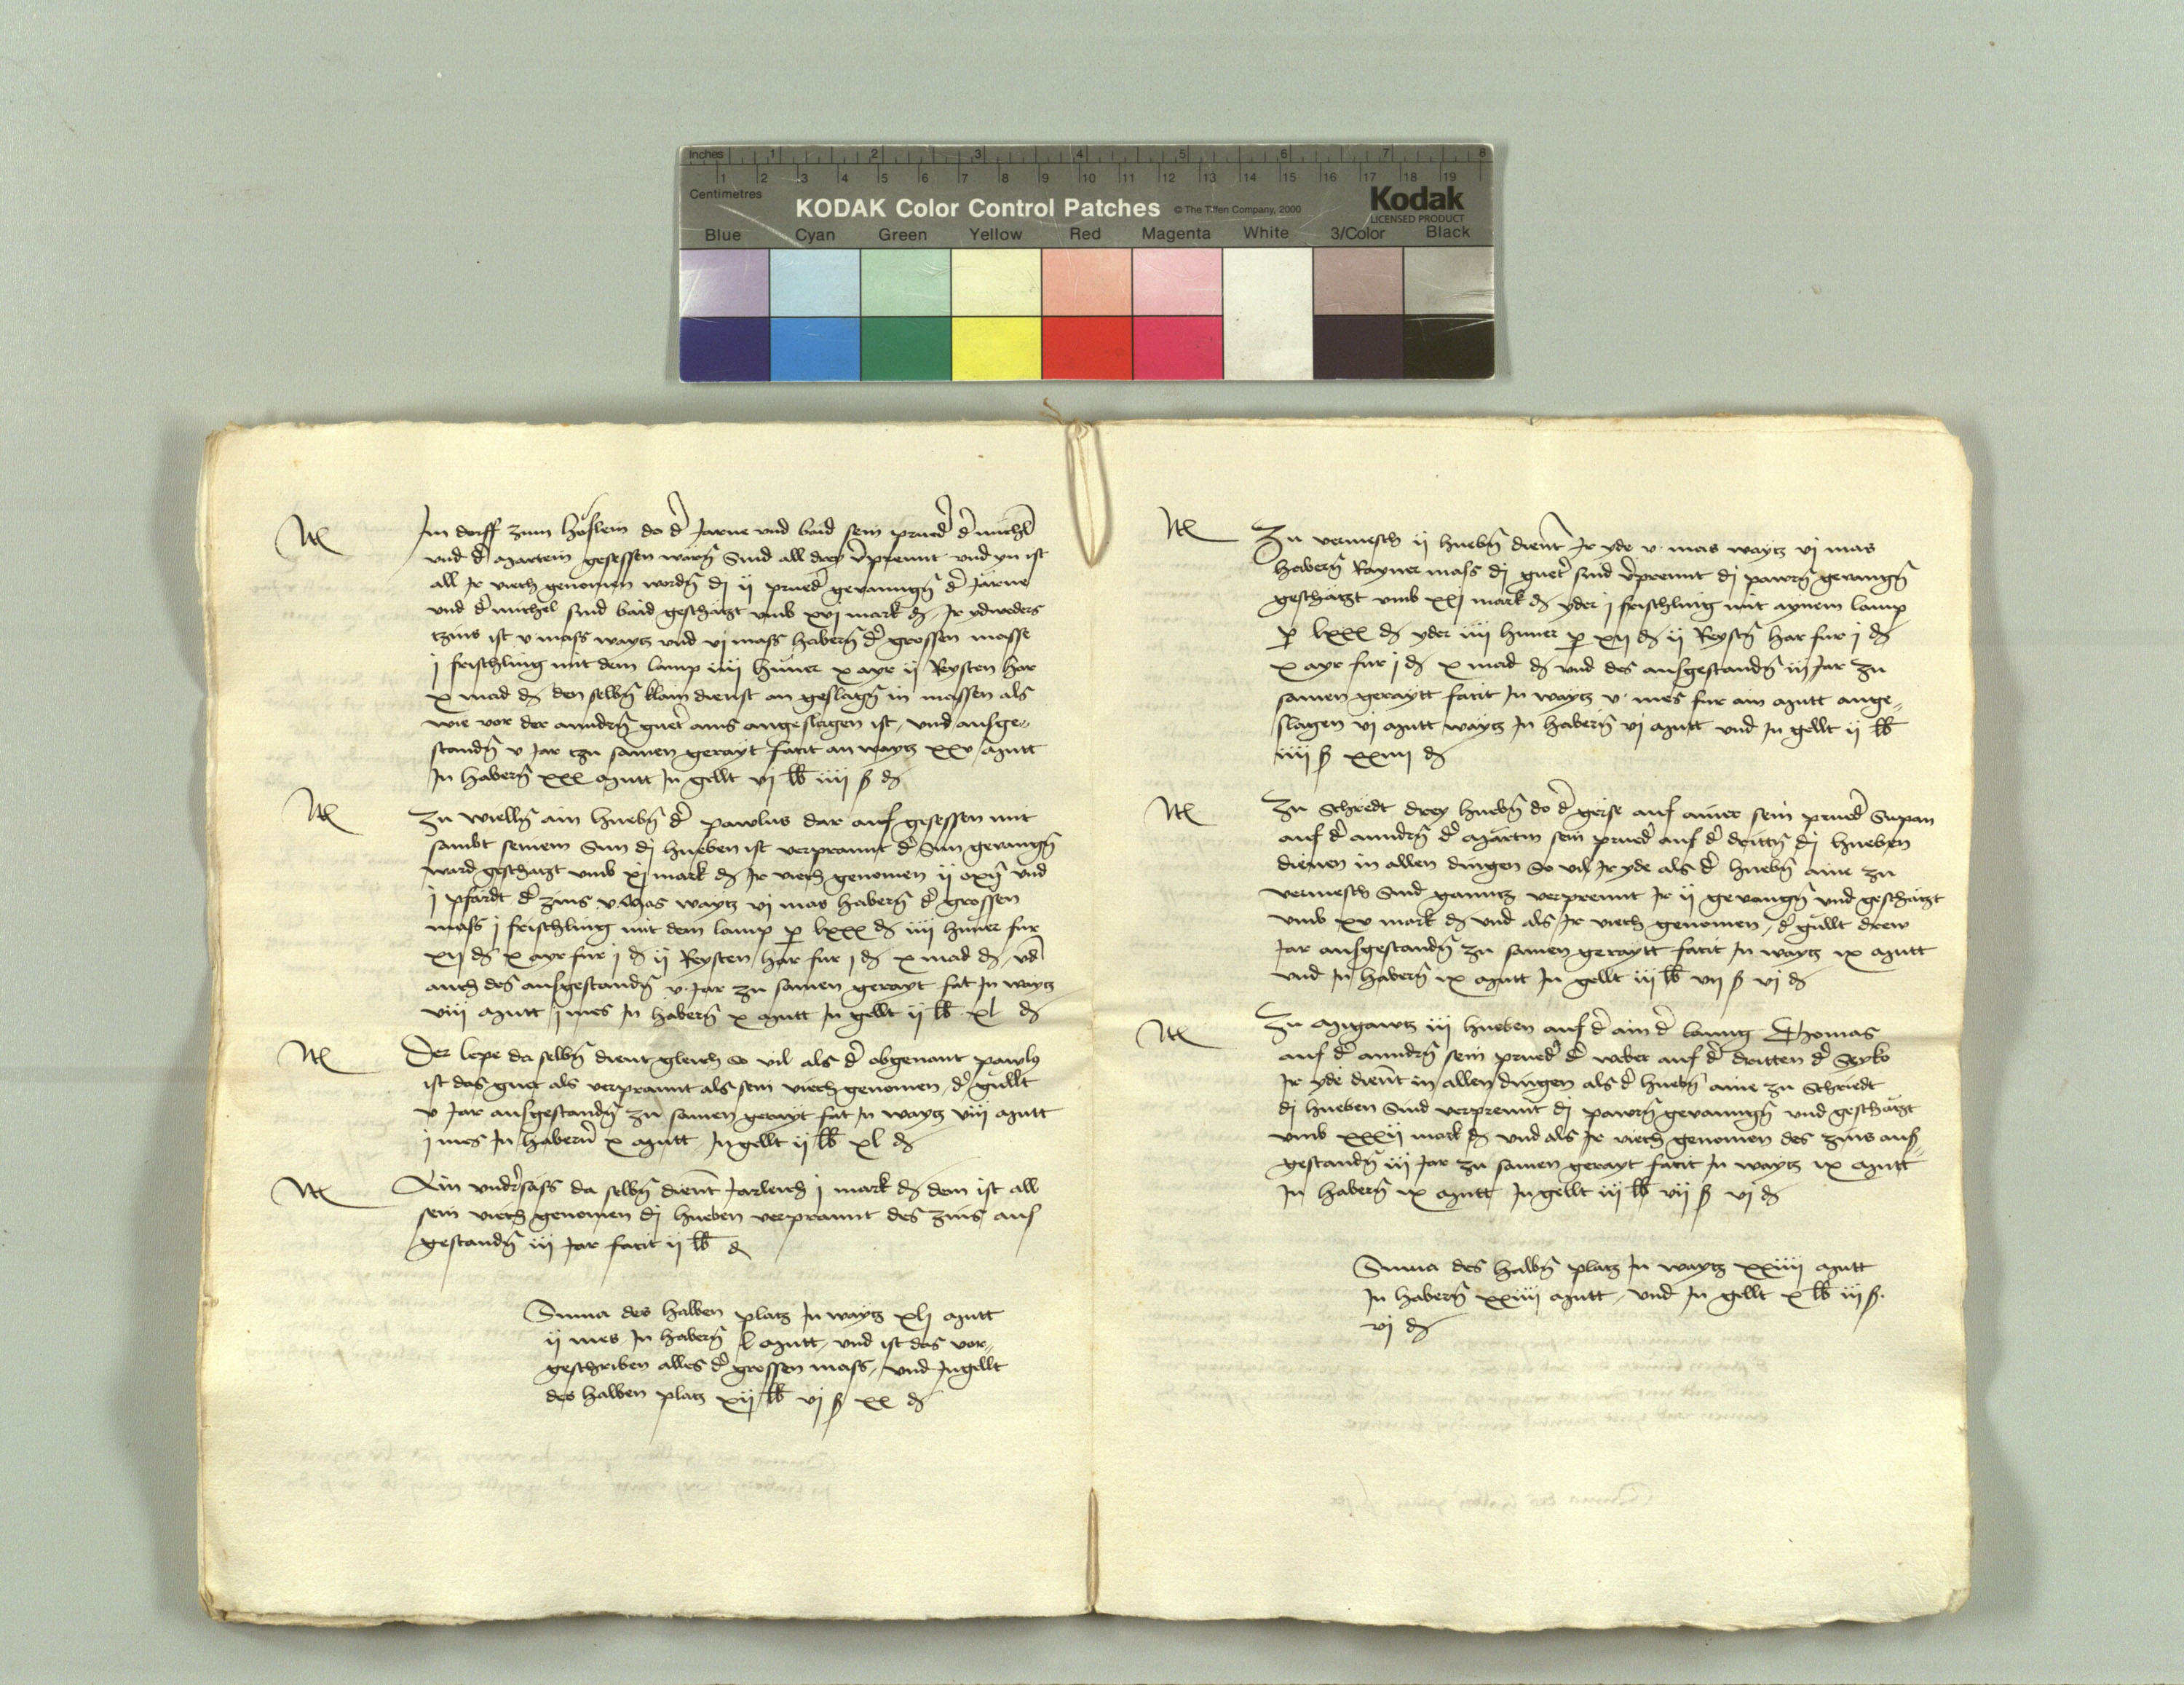 Inches 1 2 3 4 5 6 7 8
1 2 3 4 5 6 7 8 9 10 11 12 13 14 15 16 17 18 19
Centimetres
KODAK Color Control Patches © The Tiffen Company, 2000 Kodak
LICENSED PRODUCT
Blue Cyan Green Yellow Red Magenta White 3/Color Black
Itē Im dorff zum höflein do d̓ Jarne vnd baid sein prued̓ d̓ michl̄
vnd d̓ Martein gesessen warn̄ Sind all drey v̓prennt vnd yn ist
all Ir viech genomen wordn̄ dj ij prued̓ gevanngn̄ d̓ Jarne
vnd d̓ michel sind baid geschäczt vmb xvj mark ₰ Ir ydweders
tzins ist v mass waytz vnd vj mass habern̄ d̓ grossen masse
j frischling mit dem lamp iiij hüner x ayr ij Reysten har
x mad ₰ den selbn̄ klain dienst an geslagn̄ in massen als
wie vor der anndern̄ guet̓ ains angeslagen ist, vnd ausge„
standn̄ v Jar tzu samen gerayt facit an waytz xxv Mutt
In habern̄ xxx Mutt In gellt vj lb iiij ß ₰
Itē Zu wielln̄ ain hueb̄n d̓ pawlus dar auf gesessen mit
sambt seinem Sun dj hueben ist verprannt d̓ Sun gevangn̄
ward geschäczt vmb xj mark ₰ Ir viech genomen ij oxn̄ vnd
j pfärdt d̓ zins v Mas waytz vj mas habern̄ d̓ grossen
mass j frischling mit dem lamp p̱ lxxx ₰ iiij hüner fur
xij ₰ x ayr fur j ₰ ij Reysten har fur j ₰ x mad ₰ vd̄
auch des ausgestandn̄ v Jar zu samen gerayt fāt In waytz
viij Mutt j mes In habern̄ x Mutt In gellt ij lb xl ₰
Itē Der lepe da selbn̄ dient gleich so vil als d̓ obgenant pawlꝯ
ist das guet als verprannt als sein viech genomen, d̓ güllt
v Jar ausgestandn̄ zu samen gerayt fāt In waytz viij Mutt
j mes In habern̄ x Mutt In gellt ij lb xl ₰
Itē Ain vnd̓sass da selbn̄ dient Jarleich j mark ₰ dem ist all
sein viech genomen dj hueben verprannt des zins aus
gestandn̄ iij Jar facit ij lb ₰
Suma des halben platz In waytz xlj Mutt
ij mes In habern̄ l Mutt, vnd ist das vor„
geschriben alles d̓ grossen mass, vnd In gellt
des halben platz xij lb vj ß xx ₰
Itē Zu vermesch ij huebn̄ dient Ir yde v mas waytz vj mas
habern̄ Rayner mass dj guet̓ sind v̓prennt dj pawrn̄ gevangn̄
geschäczt vmb xxj mark ₰ yder j frischling mit aynem lamp
p̱ lxxx ₰ yder iiij huner p̱ xij ₰ ij Reystn̄ har fur j ₰
x ayr fur j ₰ x mad ₰ vnd des ausgestandn̄ iij Jar zu
samen geraytt facit In waytz v mes fur ain Mutt ange„
slagen vj Mutt waytz In habern̄ vj Mutt vnd In gellt ij lb
iiij ß xxiiij ₰
Itē Zu Schriedt drey huebn̄ do d̓ geise auf ainer sein prued̓ Supan
auf d̓ anndrn̄ d̓ Martin sein prued̓ auf d̓ drittn̄ dj hueben
dienen in allen dingen So vil Ir yde als d̓ huebn̄ aine zu
vermesch Sind ganntz verprennt Ir ij gevangn̄ vnd geschäczt
vmb xv mark ₰ vnd als Ir viech genomen, d̓ güllt drew
Jar ausgestandn̄ zu samen geraytt facit In waytz ix Mutt
vnd In habern̄ ix Mutt In gellt iij lb vij ß vj ₰
Itē Zu Migawtz iij hueben auf d̓ ain d̓ Thomas
auf d̓ anndrn̄ sein prued̓ d̓ weber auf d̓ dritten d̓ Seyko
Ir yde dient in allen dingen als d̓ huebn̄ aine zu Schriedt
dj hueben Sind verprennt dj pawrn̄ gevanngn̄ vnd geschäczt
vmb xxxij mark ₰ vnd als Ir viech genomen des zins aus„
gestandn̄ iij Jar zu samen gerayt facit In waytz ix Mutt
In habern̄ ix Mutt In gellt iij lb vij ß vj ₰
Suma des halbn̄ platz In waytz xxiiij Mutt
In habern̄ xxiiij Mutt, vnd In gellt x lb iij ß
vj ₰